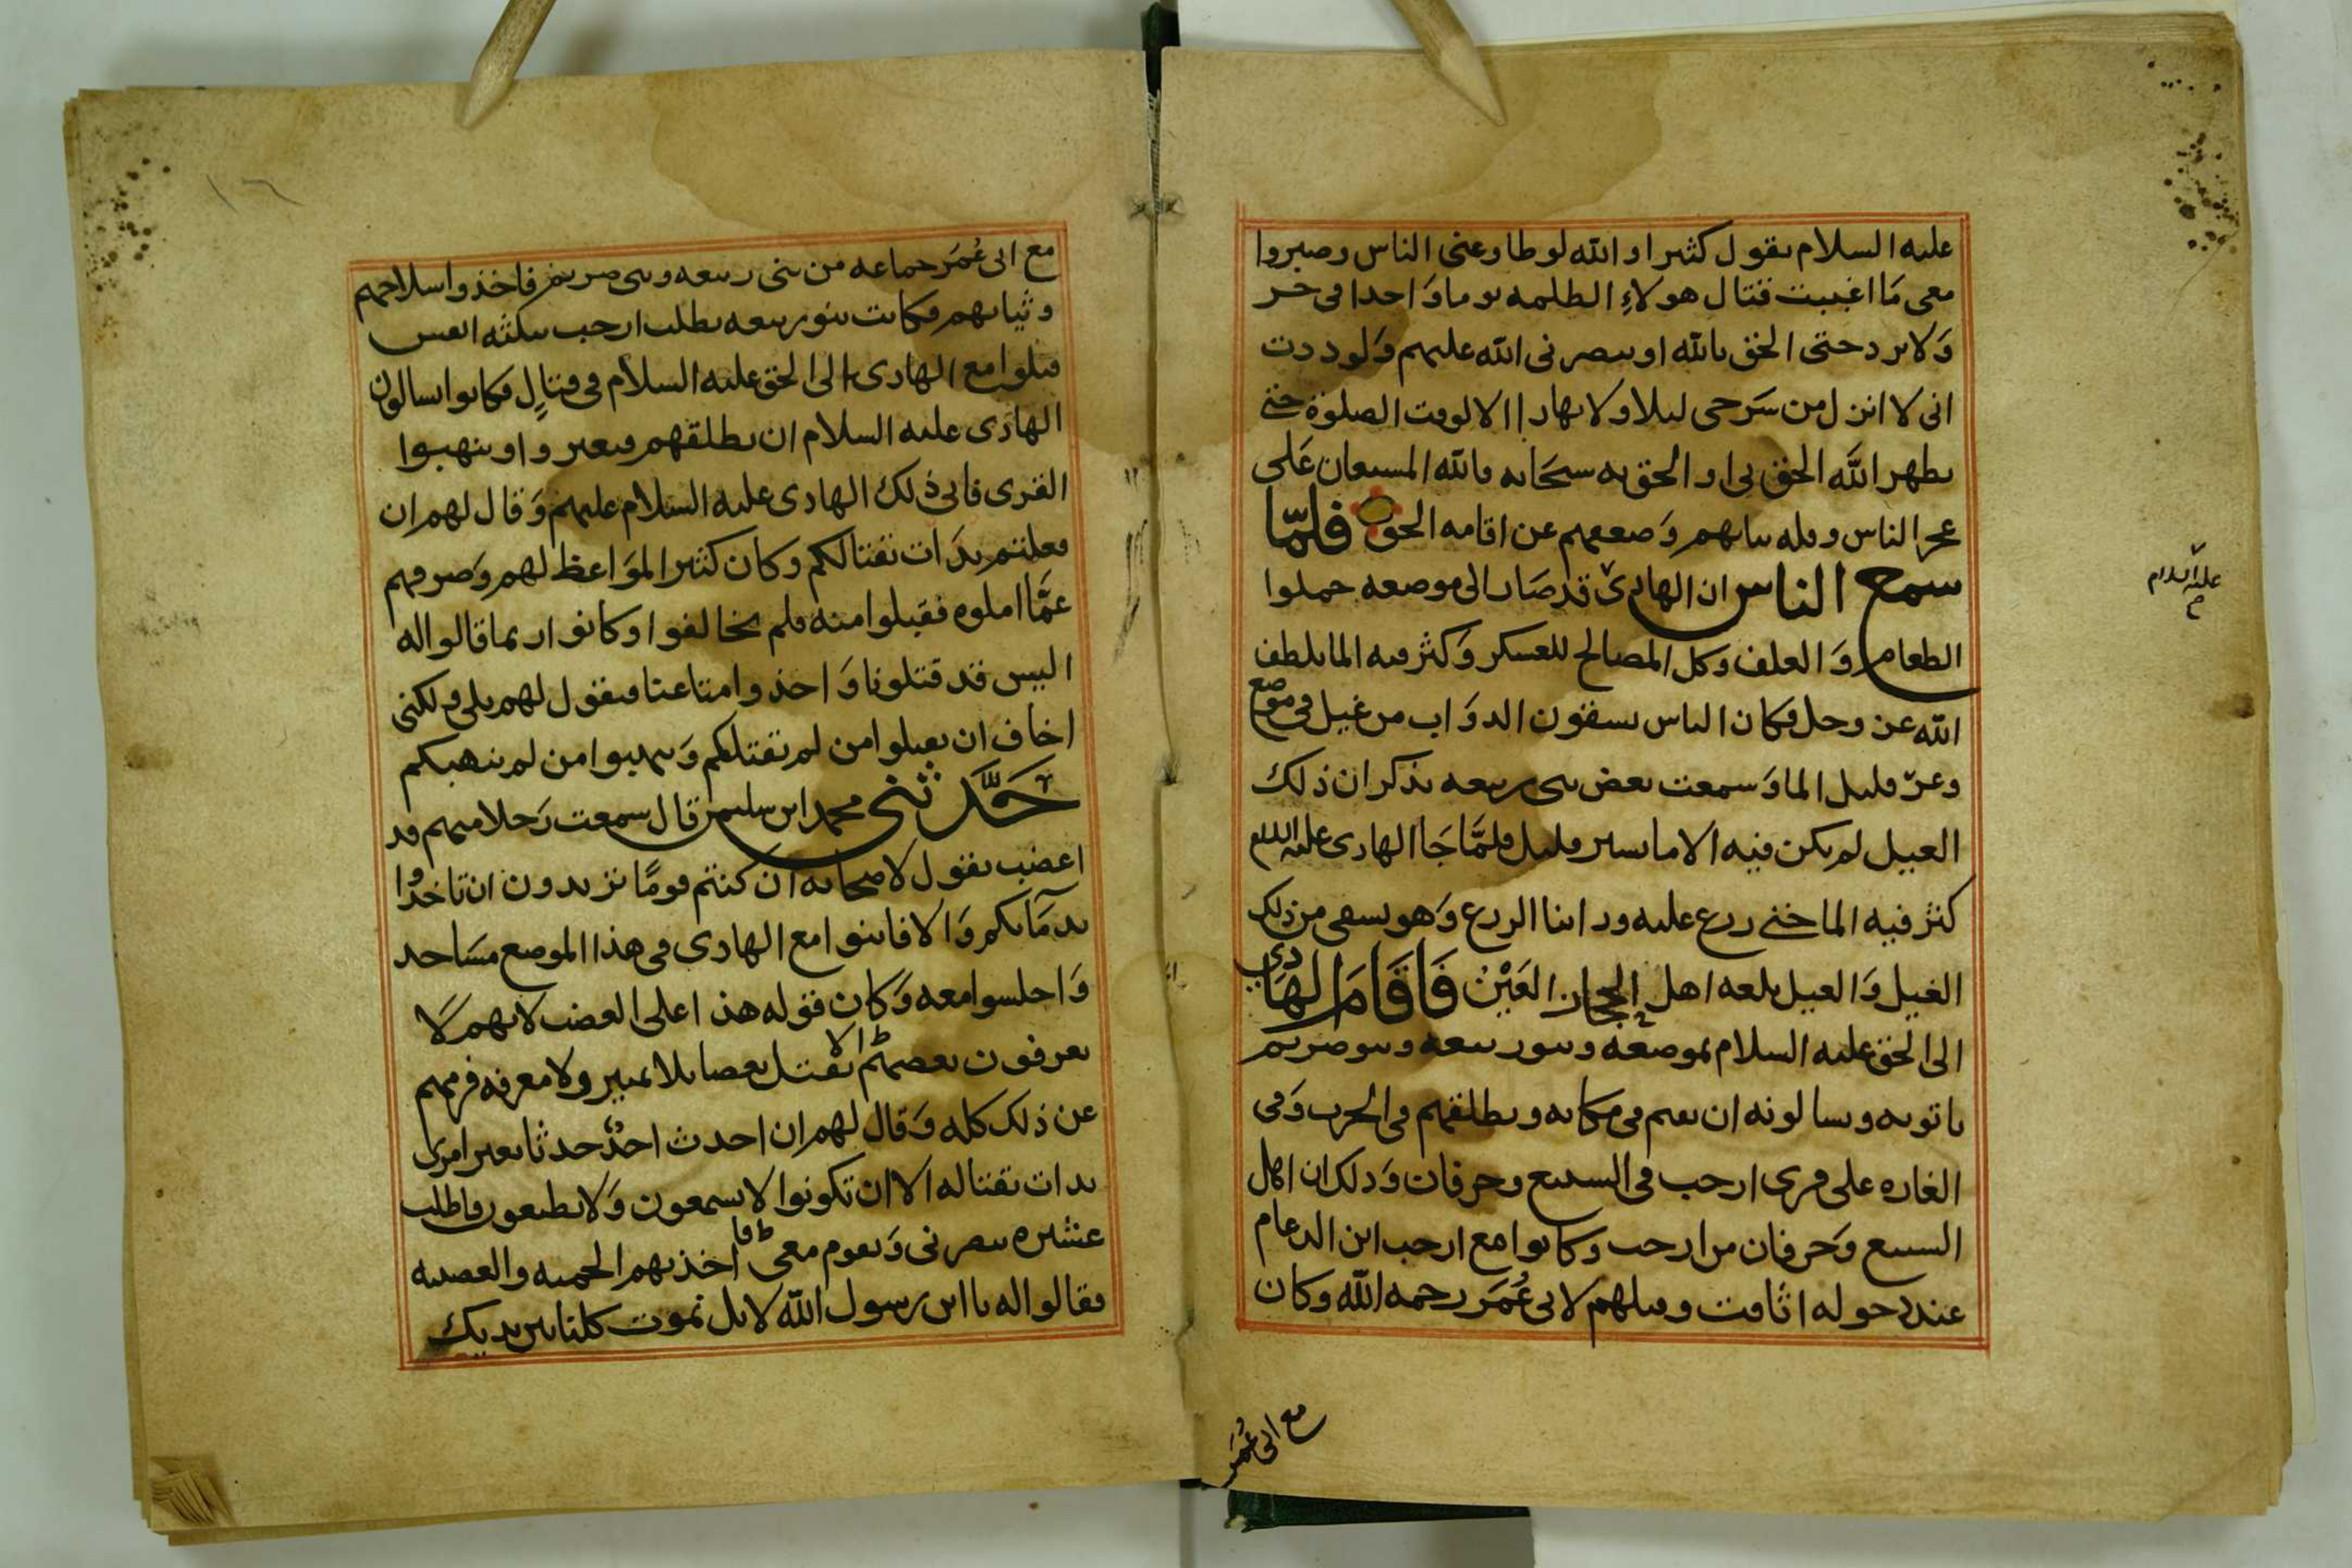 عليه السلام يقول كثيرا والله لو طاوعنى الناس وصبروا
معى مَا اغببت قتال هولاءِ الظلمه يوما وَاحدا فى حر
وَلا برد حتى الحق بالله او ينصرنى الله عليهم وَلوددت
انى لا انزل من سَرجى ليلا ولا نهارا الا لوقت الصلوة حتى
يظهر اللَّه الحق بى او الحق به سبحَانه والله المستعان عَلى
عجز الناس وقله ثباتهم وَضعفهم عن اقامه الحق فلمّا
سمع الناس ان الهادى قد صَار الى موضعه حملوا
الطعام وَالعلف وكل المصالح للعسكر وَكثر فيه الما بلطف
الله عز وجل فكان الناس يسقون الدوَاب من غيل فى موضع
وعر قليل الما وَسمعت بعض بنى ربيعه يذكر ان ذلك
الغيل لم يكن فيه الا ما يسير قليل فلمَّا جَا الهادى عليه السلام
كثر فيه الما حتى زرع عليه وراينا الزرع وَهو يسقى من ذلك
الغيل وَالغيل بلغه اهل الحجاز العَيْن فَاقَامَ الهَادى
الى الحق عليه السلام بموضعه وبنو ربيعه وبنو صريم
ياتونه ويسالونه ان يقم فى مكانه ويطلقهم فى الحرب وَفى
الغاره على قرى ارحب فى السبيع وحرفان وَذلك ان اهل
السبيع وَحرفان من ارحب وكانوا مع ارحب ابن الدعام
عند دخوله اثافت وقبلهم لابى عُمَر رحمه الله وكان
مع ابى عُمَر
عليه السلام
مع ابى عُمَر جماعه من بنى ربيعه وبنى صريم فاخذوا سلاحهم
وثيابهم وكانت بنو ربيعه تطلب ارحب بثلثه انفس
قتلوا مع الهادى الى الحق عليه السلام فى قتالٍ فكانوا يسالون
الهادى عليه السلام ان يطلقهم فيغيروا وينهبوا
القرى فابى ذلك الهادى عليه السلام عليهم وَقال لهم ان
فعلتم بدَات بقتالكم وكان كثير الموَاعظ لهم وَصرفهم
عمَّا املوه فقبلوا منه فلم يخالفوا وكانوا ربما قالوا له
اليس قد قتلونا وَاخذوا متاعنا فيقول لهم بلى ولكنى
اخاف ان تقتلوا من لم يقتلكم وَتنهبوا من لم ينهبكم
حَدَّثنى محمد ابن سليمن قال سمعت رَجلا منهم قد
اغضب يقول لاصحابه ان كنتم قومًا تريدون ان تاخذوا
بدمَائكم وَالا فابنوا مع الهادى فى هذا الموضع مسَاجد
وَاجلسوا معه وَكان قوله هذا على الغضب لانهم لَا
يعرفون بعضهم الا يقتل بعضا بلا تمييز ولا معرفه فزجرهم
عن ذلك كله وَقال لهم ان احدث احدٌ حدثا بغير امرى
بدات بقتاله الا ان تكونوا لا تسمعون وَلا تطيعون فاطلب
عشيره تنصرنى وَتقوم معى فاخذتهم الحميه والعصبيه
فقالوا له يا ابن رسول الله لا بل نموت كلنا بين يديك